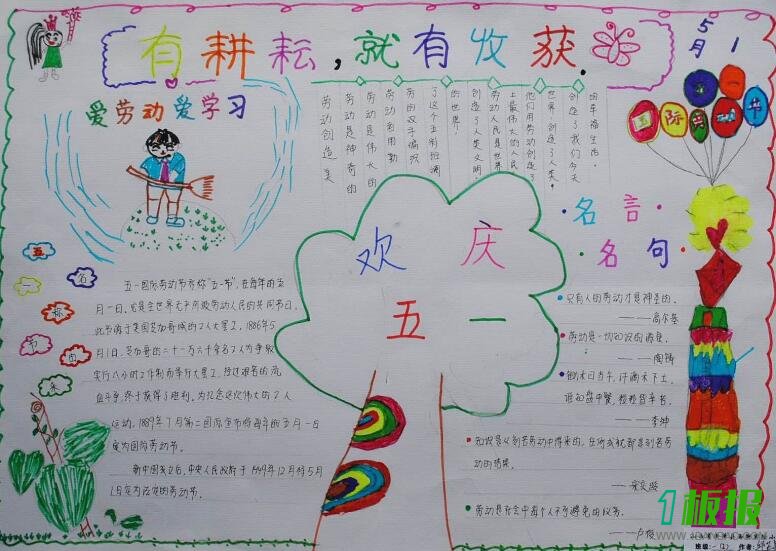 有耕耘,就有收获.
5月1
五一国际劳动节
爱劳动爱学习
劳动创造美
劳动是神奇的
劳动是伟大的
劳动者用勤
劳的双手编织
了这个五彩斑斓
的世界!
创造了人类文明
劳动人民是世界
上最伟大的人民
他们用劳动创造了
世界,创造了人类。
创造了我们今天
的幸福生活。
五一名称节的来
欢庆
五一
名言
名句
五一国际劳动节亦称"五一节",在每年的五
月一日。它是全世界无产阶级劳动人民的共同节日。
此节源于美国芝加哥城的工人大罢工。1886年5
月1日,芝加哥的二十一万六千余名工人为争取
实行八小时工作制而举行大罢工,经过艰苦的流
血斗争,终于获得了胜利。为纪念这次伟大的工人
运动,1889年7月第二国际宣布将每年的五月一日
定为国际劳动节。
新中国成立后,中央人民政府于1949年12月将5月
1日定为法定的劳动节。
只有人的劳动才是神圣的。
——高尔基
劳动是一切知识的源泉。
——陶铸
锄禾日当午,汗滴禾下土。
谁知盘中餐,粒粒皆辛苦。
——李绅
知识是从刻苦劳动中得来的,任何成就都是刻苦劳
动的结果。
——宋庆龄
劳动是社会中每个人不可避免的义务。
——卢梭
1板报
班级:一(2) 作者: